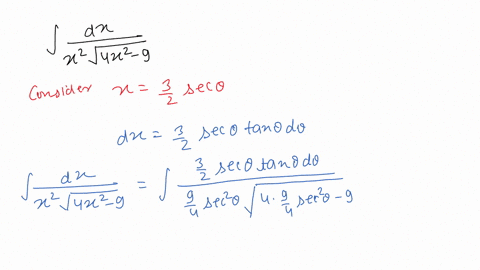 ∫ dx / (x² √(4x²-9))
Consider x = 3/2 secθ
dx = 3/2 secθ tanθ dθ
∫ dx / (x² √(4x²-9)) = ∫ (3/2 secθ tanθ dθ) / (9/4 sec²θ √(4·9/4 sec²θ - 9))